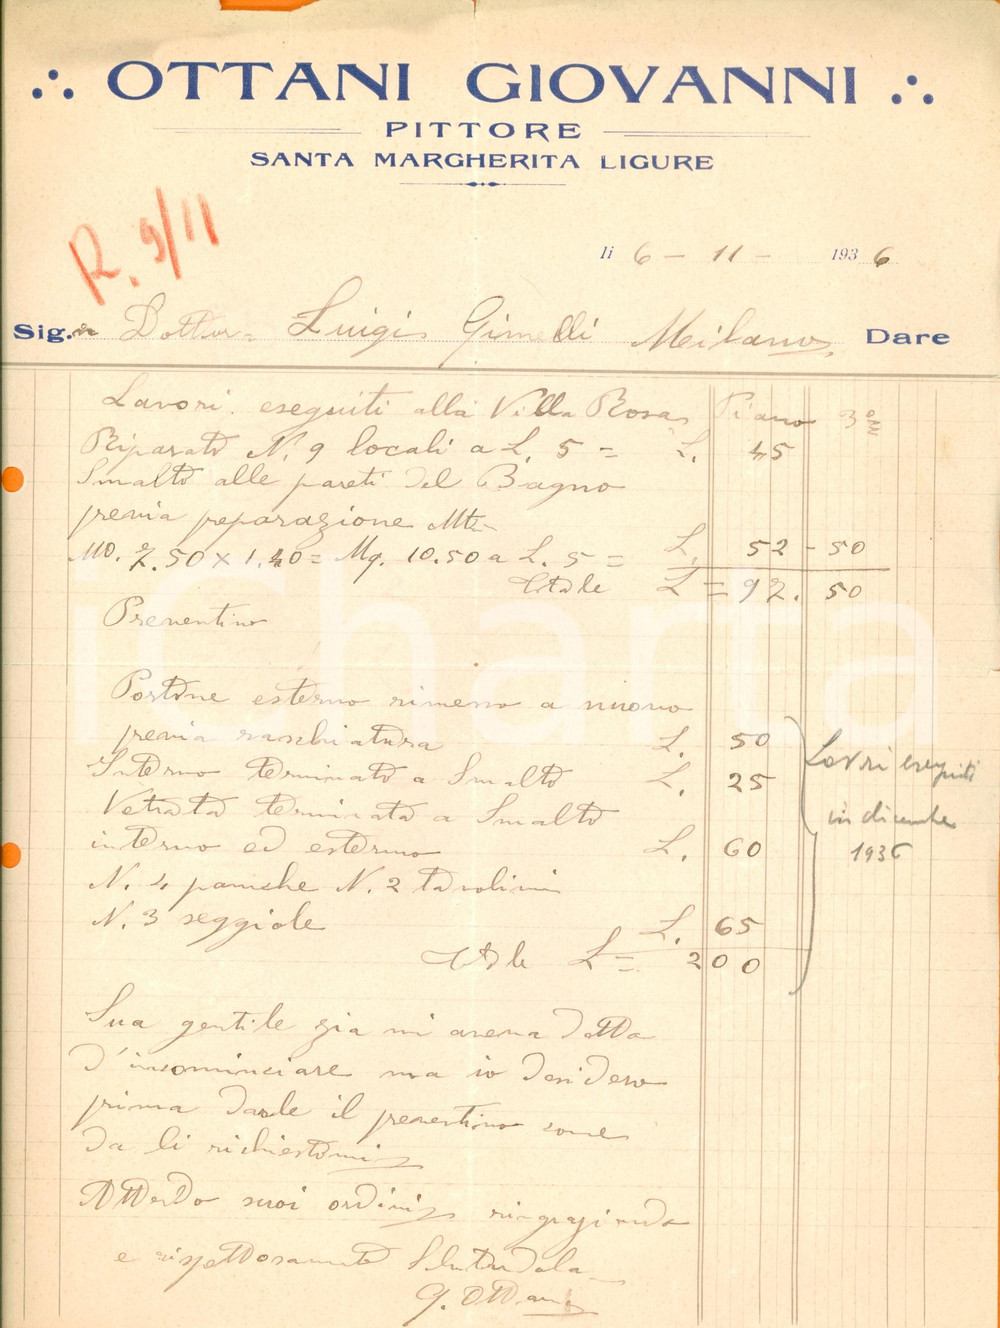 OTTANI GIOVANNI
PITTORE
SANTA MARGHERITA LIGURE
R. 9/11
li 6 - 11 - 1936
Sig. Dottor Luigi Ginelli Milano Dare
Lavori eseguiti alla Villa Rosa Piano 3°
Riparato N. 9 locali a L. 5 = L. 45
Smalto alle pareti del Bagno
previa preparazione Mt
7.50 X 1.40 = Mq. 10.50 a L. 5 = L. 52 - 50
Totale L = 97. 50
Preventivo
Portone esterno rimesso a nuovo
previa raschiatura L. 50
Interno terminato a Smalto L. 25
Vetrata terminata a Smalto
interno ed esterno L. 60
N. 4 panche N. 2 tavolini
N. 3 seggiole L. 65
Totale L = 200
Lavori eseguiti
in dicembre
1936
Sua gentile zia mi aveva detto
d'incominciare ma io desidero
prima darle il preventivo come
da lei richiestomi
Attendo suoi ordini ringraziando
e rispettosamente Salutandola
G. Ottani
iCharta